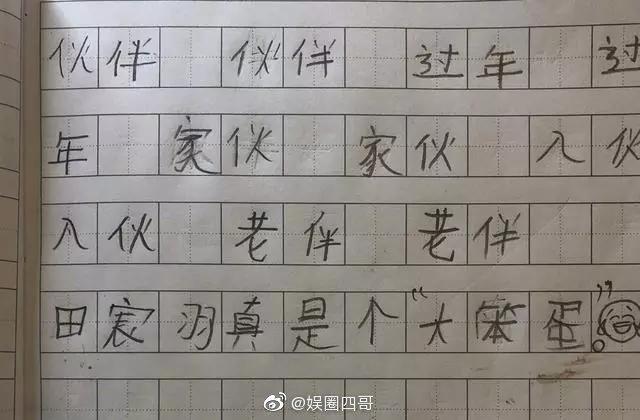 伙伴 伙伴 过年 过
年 家伙 家伙 入伙
入伙 老伴 老伴
田宸羽真是个“大笨蛋”。
@娱圈四哥